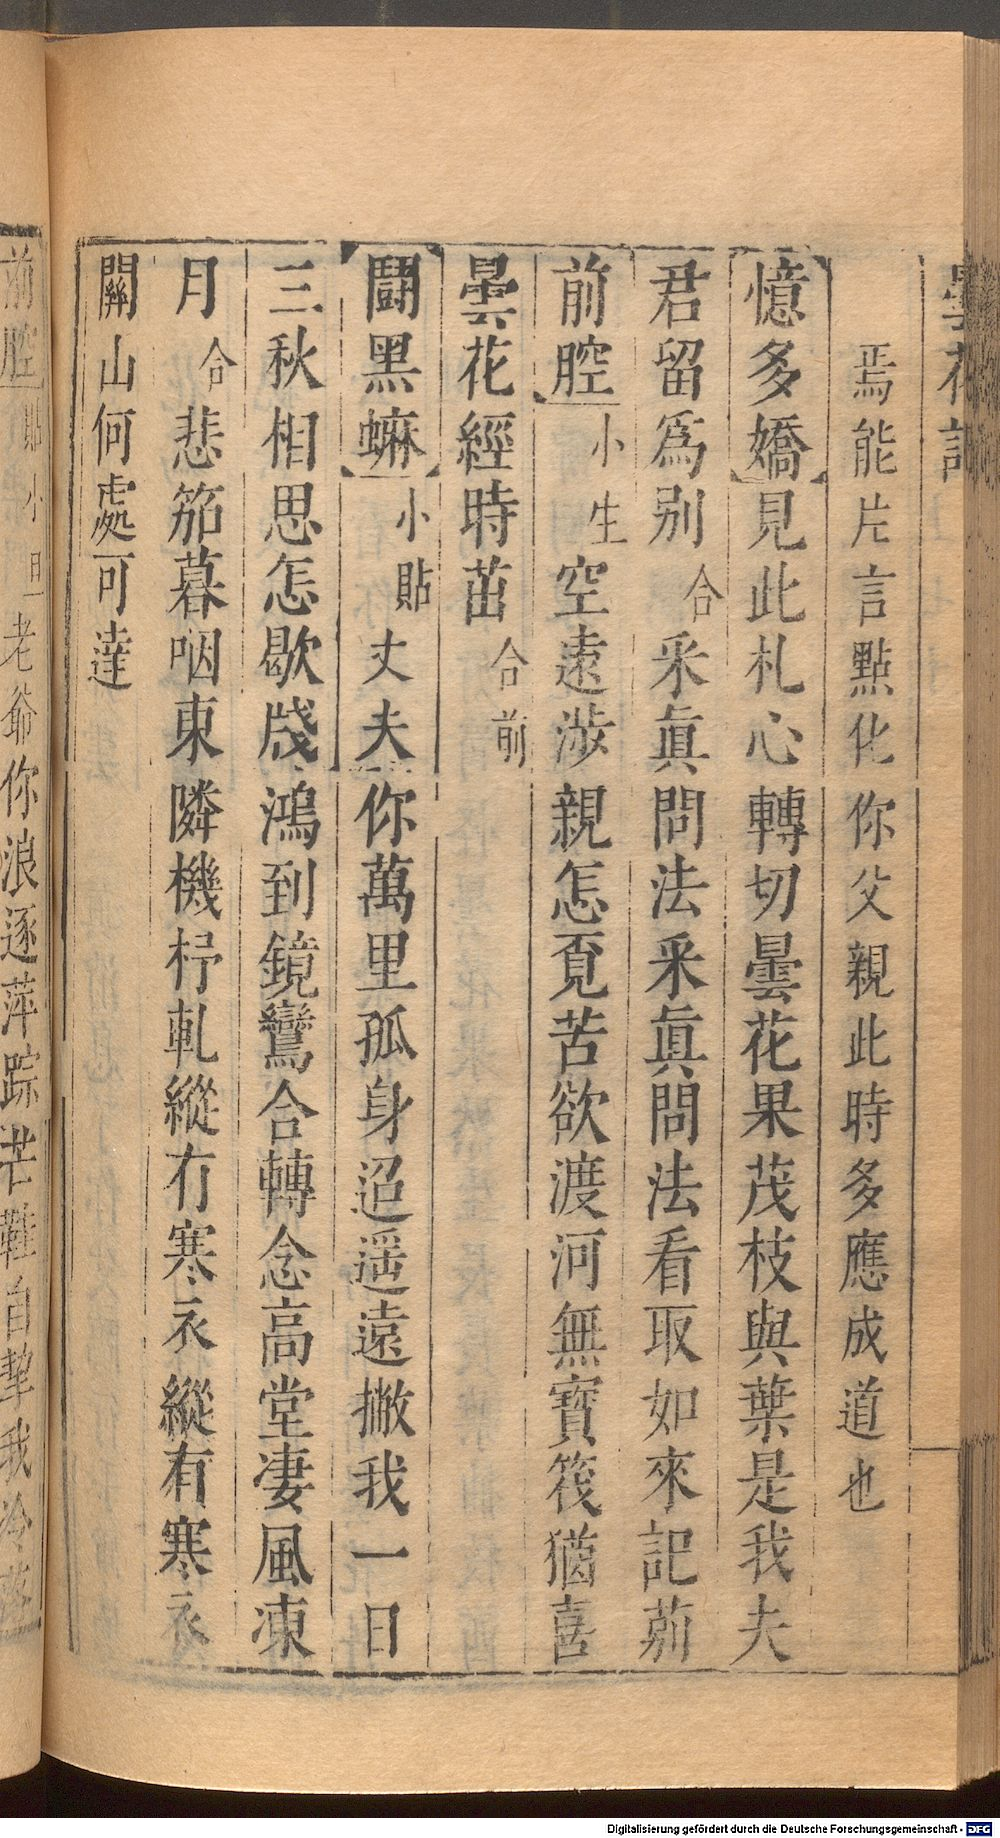 曇花記
焉能片言點化你父親此時多應成道也
憶多嬌見此札心轉切曇花果茂枝與葉是我夫
君留爲别合釆眞問法釆眞問法看取如來記莂
前腔小生空遠涉親怎覔苦欲渡河無寶筏猶喜
曇花經時茁合前
鬪黑蟆小貼丈夫你萬里孤身迢遥遠撇我一日
三秋相思怎歇牋鴻到鏡鸞合轉念高堂凄風凍
月合悲笳暮咽東隣機杼軋縱有寒衣縱有寒衣
關山何處可達
前腔貼小旦老爺你浪逐萍踪芒鞋自挈我冷
Digitalisierung gefördert durch die Deutsche Forschungsgemeinschaft - DFG